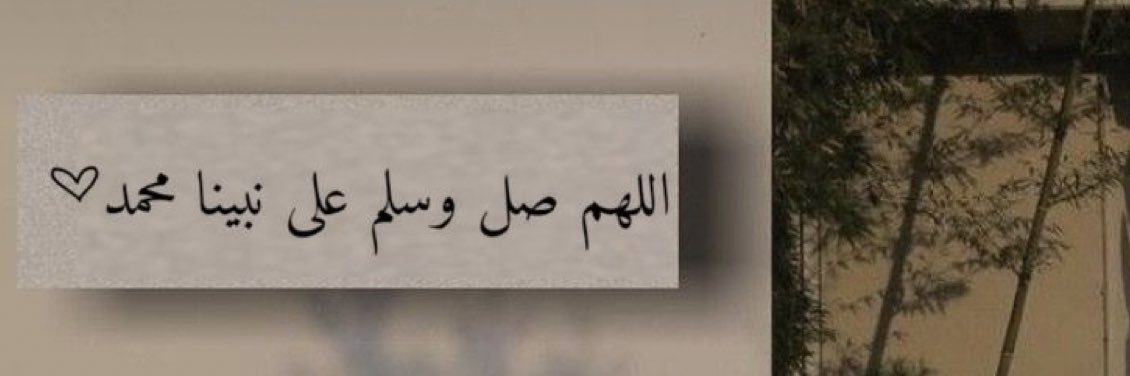 اللهم صل وسلم على نبينا محمد♡